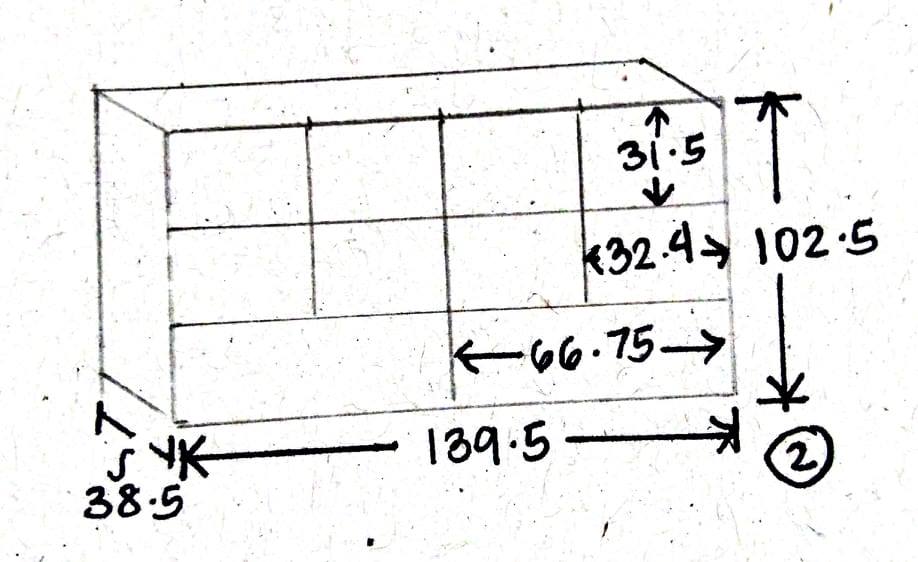 31.5
32.4
102.5
66.75
139.5
2
38.5